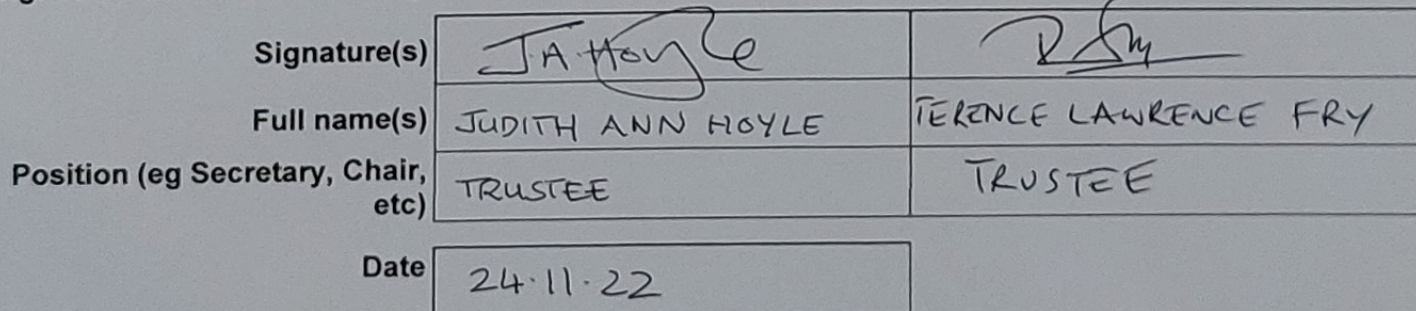 Signature(s) J.A. Hoyle
Full name(s) JUDITH ANN HOYLE TERENCE LAWRENCE FRY
Position (eg Secretary, Chair, etc) TRUSTEE TRUSTEE
Date 24.11.22